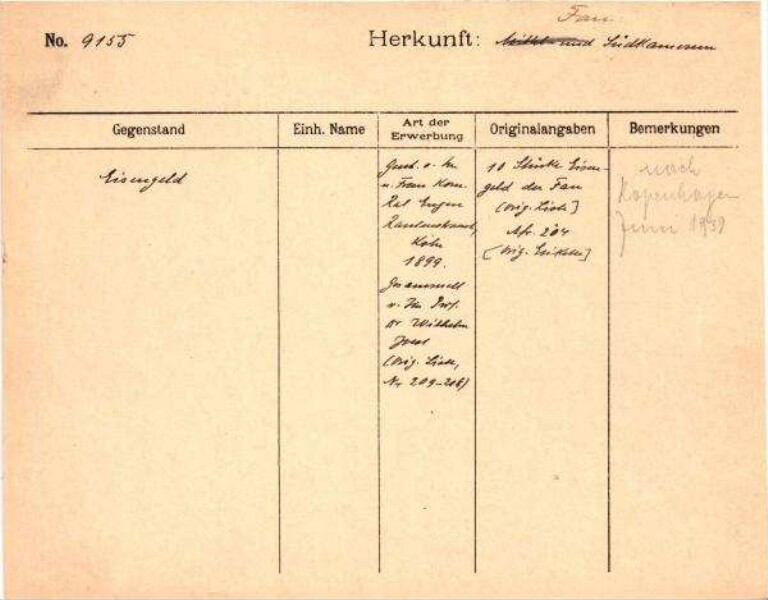 Fan
No. 9155 Herkunft: Mittel- und Südkamerun
Gegenstand
Einh. Name
Art der
Erwerbung
Originalangaben
Bemerkungen
Eisengeld
Gesch. v. Hn
u. Frau Kom.
Rat Eugen
Rautenstrauch,
Köln
1899.
Gesammelt
v. Hn Prof.
Dr Wilhelm
Joest
(Orig. Liste,
Nr 209-218)
10 Stücke Eisen-
geld der Fan
[Orig. Liste]
Afr. 204
[Orig. Etikette]
nach
Kopenhagen
Juni 1939